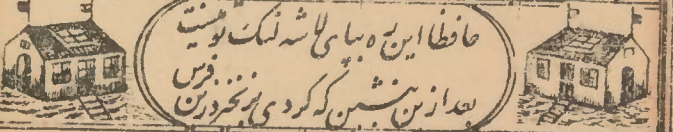 حافظا این ره بپای لاشه لنگ تو نیست
بعد ازین بنشین که گردی برنخیزد زین فرس